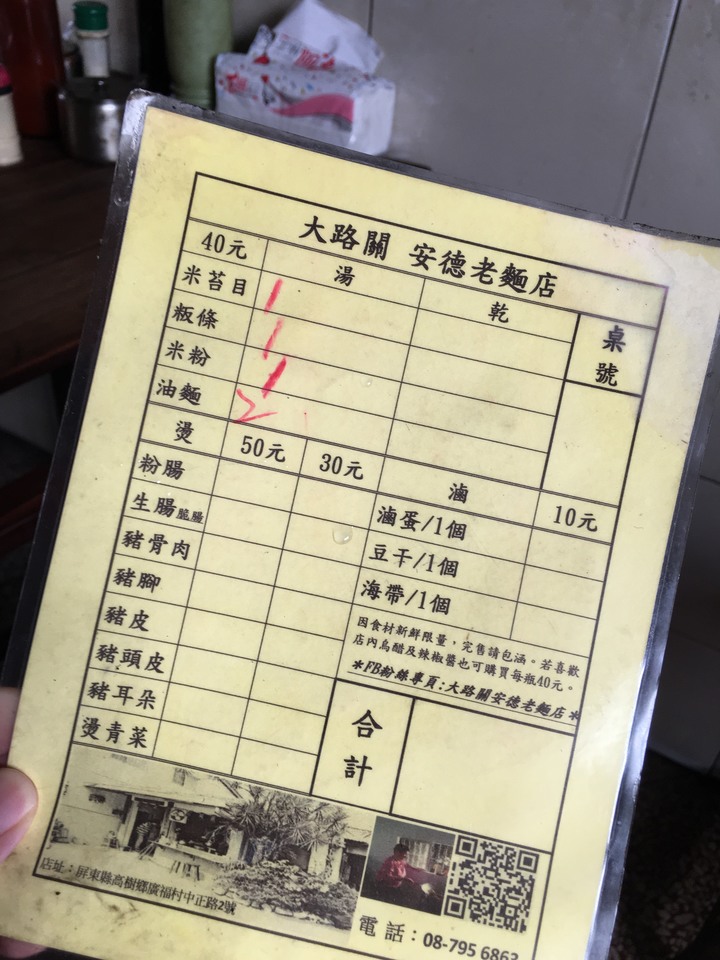 大路關 安德老麵店
40元 湯 乾 桌號
米苔目 1
粄條 1
米粉 1
油麵 2
燙 50元 30元 滷 10元
粉腸
生腸脆腸
豬骨肉
豬腳
豬皮
豬頭皮
豬耳朵
燙青菜
滷蛋/1個
豆干/1個
海帶/1個
因食材新鮮限量,完售請包涵。若喜歡
店內烏醋及辣椒醬也可購買每瓶40元。
*FB粉絲專頁:大路關安德老麵店*
合計
店址:屏東縣高樹鄉廣福村中正路2號
電話:08-795 6863